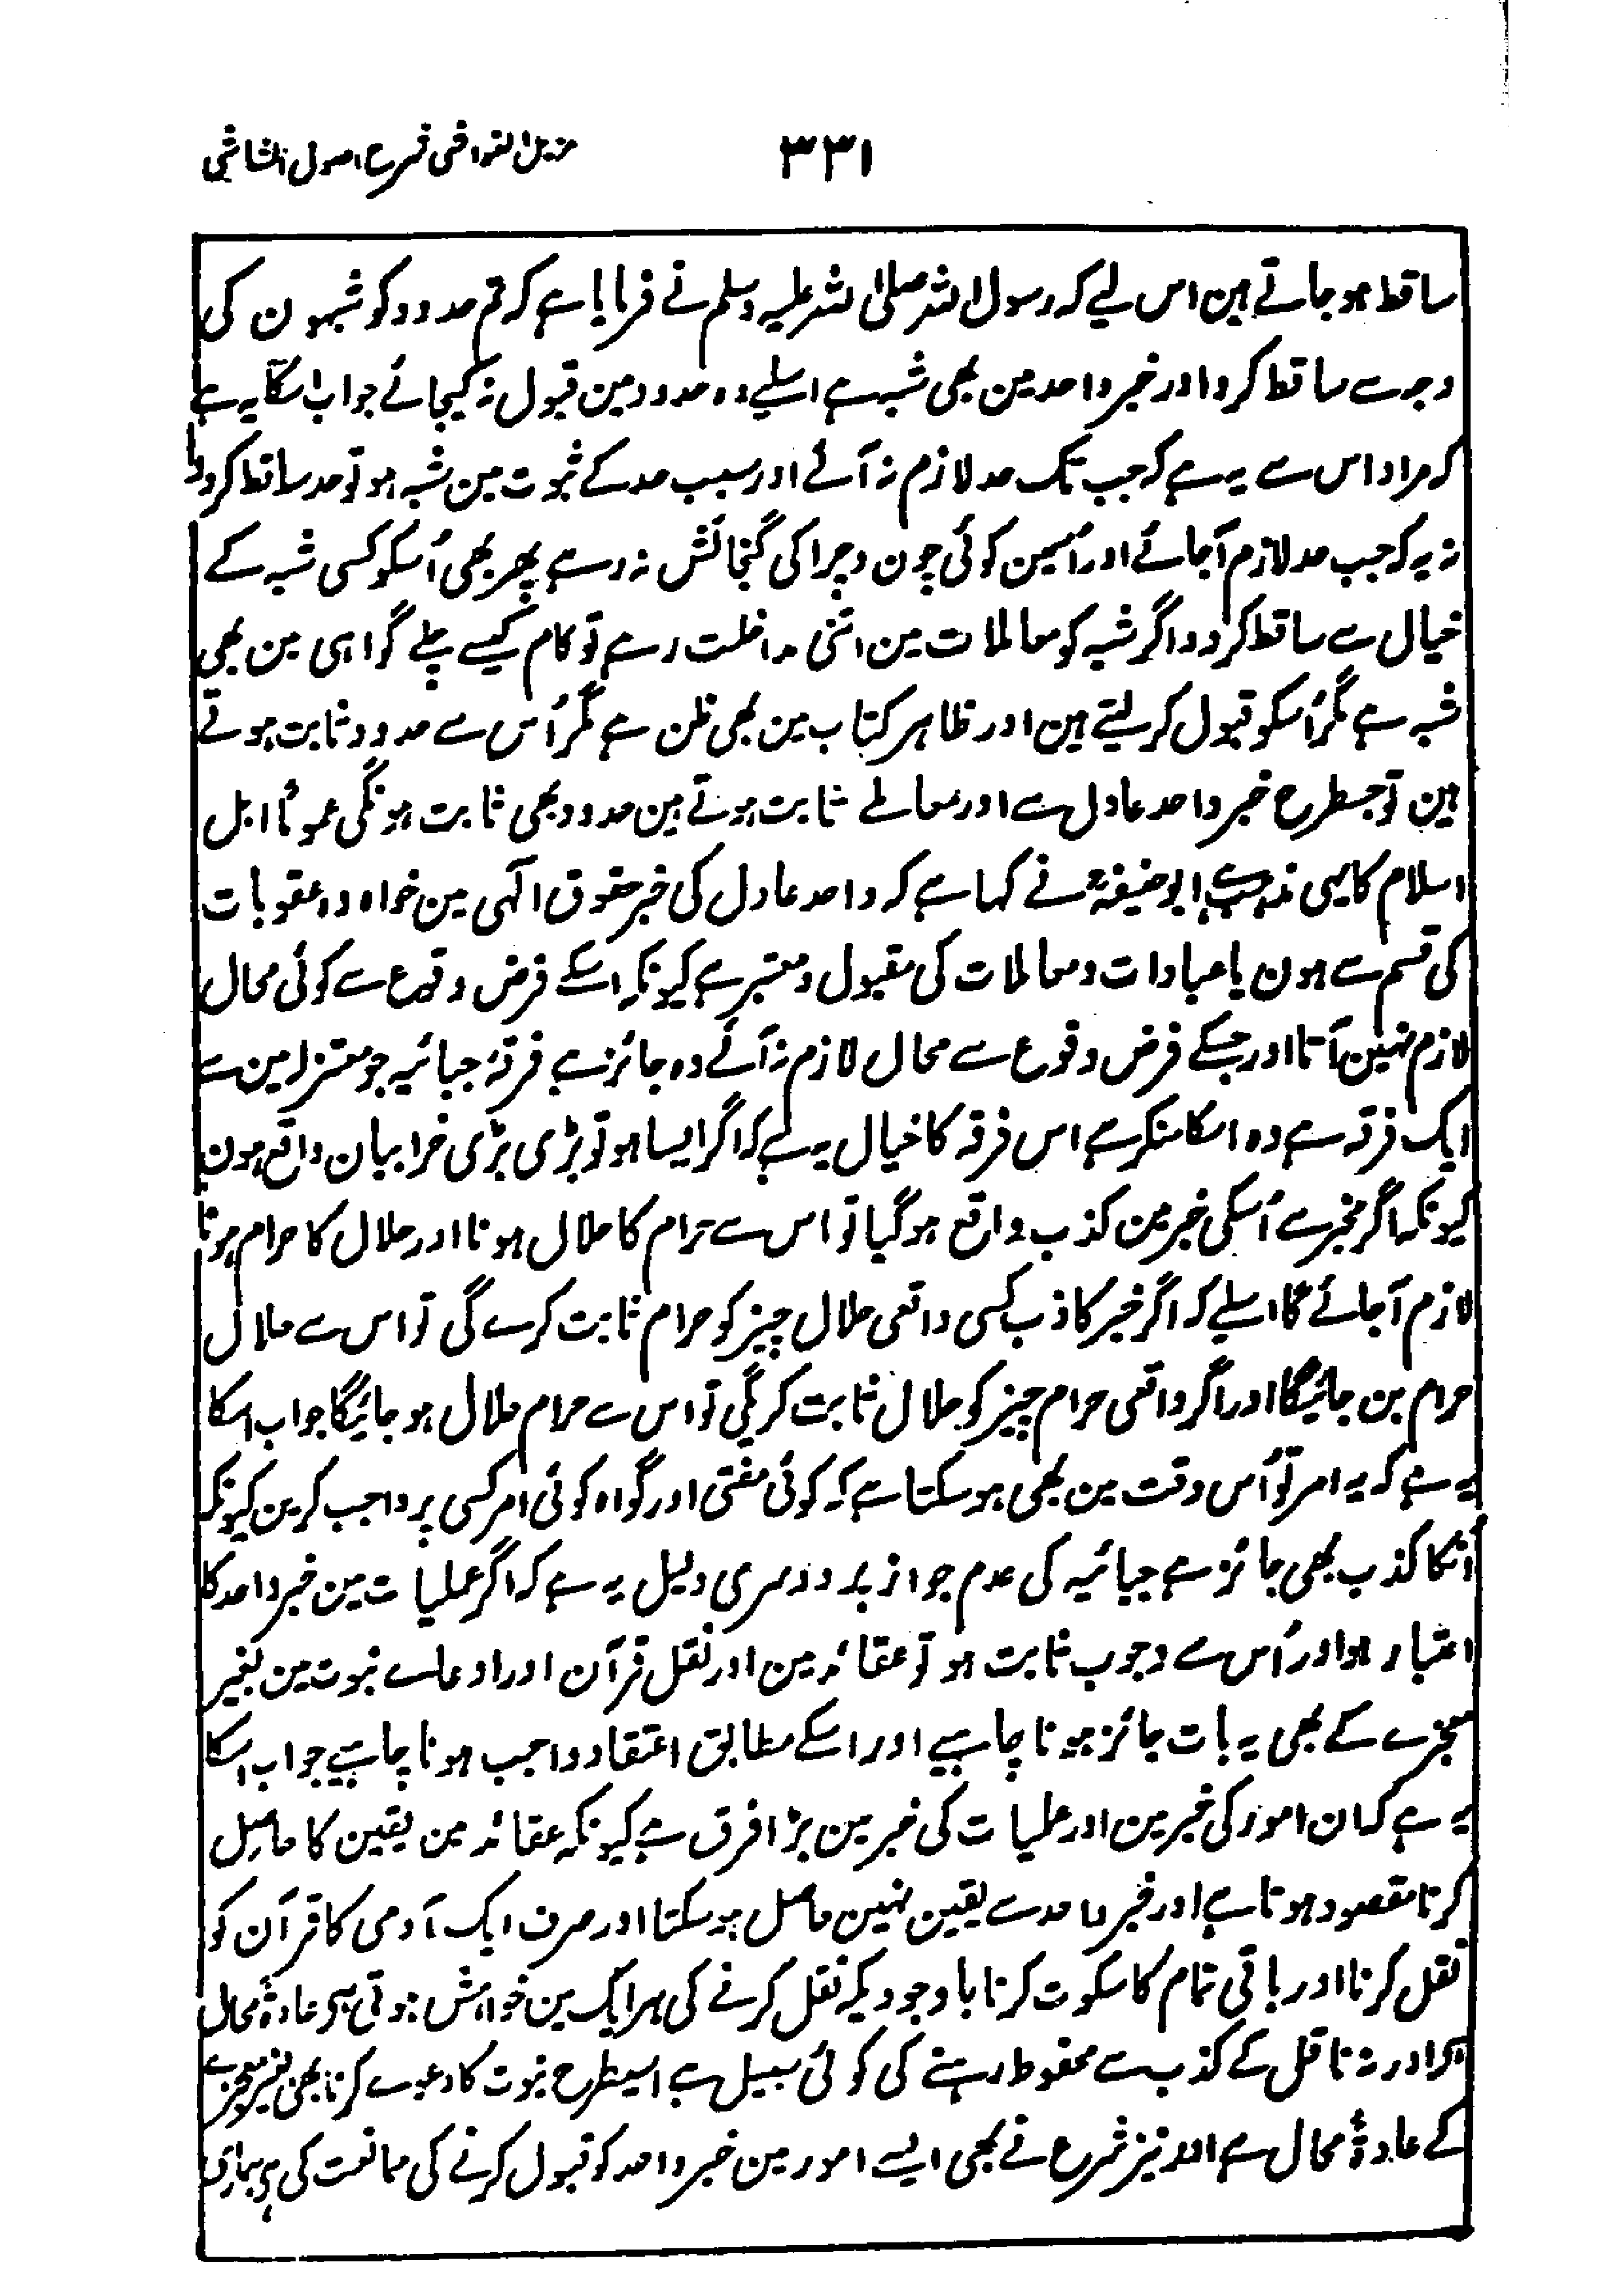 مزیل الغواشی شرح اصول الشاشی
۳۳۱
ساقط ہو جاتے ہین اس لیے کہ رسول اللہ صلی اللہ علیہ وسلم نے فرمایا ہے کہ تم حدود کو شبہون کی
وجہ سے ساقط کرو اور خبر واحد مین بھی شبہ ہے اسلیے وہ حدود مین قبول نہ کیجائے جواب اسکا یہ ہے
کہ مراد اس سے یہ ہے کہ جب تک حد لازم نہ آئے اور سبب حد کے ثبوت مین شبہ ہو تو حد ساقط کر دو
نہ یہ کہ جب حد لازم آجائے اور اُسمین کوئی چون وچرا کی گنجائش نہ رہے پھر بھی اُسکو کسی شبہ کے
خیال سے ساقط کر دو اگر شبہ کو معاملات مین اتنی مداخلت رہے تو کام کیسے چلے گواہی مین بھی
شبہ ہے مگر اُسکو قبول کر لیتے ہین اور ظاہر کتاب مین بھی ظن ہے مگر اُس سے حدود ثابت ہوتے
ہین تو جسطرح خبر واحد عادل سے اور معاملے ثابت ہوتے ہین حدود بھی ثابت ہونگی عموماً اہل
اسلام کا یہی مذہب ہے ابو حنیفہؒ نے کہا ہے کہ واحد عادل کی خبر حقوق الٰہی مین خواہ وہ عقوبات
کی قسم سے ہون یا عبادات و معاملات کی مقبول و معتبر ہے کیونکہ اسکے فرض وقوع سے کوئی محال
لازم نہین آتا اور جسکے فرض وقوع سے محال لازم نہ آئے وہ جائز ہے فرقۂ جبائیہ جو معتزلہ مین سے
ایک فرقہ ہے وہ اسکا منکر ہے اس فرقہ کا خیال یہ ہے کہ اگر ایسا ہو تو بڑی بڑی خرابیان واقع ہون
کیونکہ اگر مخبر سے اُسکی خبر مین کذب واقع ہو گیا تو اس سے حرام کا حلال ہونا اور حلال کا حرام ہونا
لازم آجائے گا اسلیے کہ اگر خبر کاذب کسی واقعی حلال چیز کو حرام ثابت کرے گی تو اس سے حلال
حرام بن جائیگا اور اگر واقعی حرام چیز کو حلال ثابت کریگی تو اس سے حرام حلال ہو جائیگا جواب اسکا
یہ ہے کہ یہ امر تو اُس وقت مین بھی ہو سکتا ہے کہ کوئی مفتی اور گواہ کوئی امر کسی پر واجب کرین کیونکہ
اُنکا کذب بھی جائز ہے جبائیہ کی عدم جواز پر دوسری دلیل یہ ہے کہ اگر عملیات مین خبر واحد کا
اعتبار ہو اور اُس سے وجوب ثابت ہو تو عقائد مین اور نقل قرآن اور ادعاے نبوت مین بغیر
معجزے کے بھی یہ بات جائز ہونا چاہیے اور اسکے مطابق اعتقاد واجب ہونا چاہیے جواب اسکا
یہ ہے کہ ان امور کی خبرین اور عملیات کی خبرین بڑا فرق ہے کیونکہ عقائد مین یقین کا حاصل
کرنا مقصود ہوتا ہے اور خبر واحد سے یقین نہین حاصل ہو سکتا اور صرف ایک آدمی کا قرآن کو
نقل کرنا اور باقی تمام کا سکوت کرنا باوجودیکہ نقل کرنے کی ہر ایک مین خواہش ہوتی ہے عادۃً محال
ہے اور نہ ناقل کے کذب سے محفوظ رہنے کی کوئی سبیل ہے اسیطرح نبوت کا دعوے کرنا بھی بغیر معجزے
کے عادۃً محال ہے اور نیز شرع نے بھی ایسے امور مین خبر واحد کو قبول کرنے کی ممانعت کی ہے ہماری